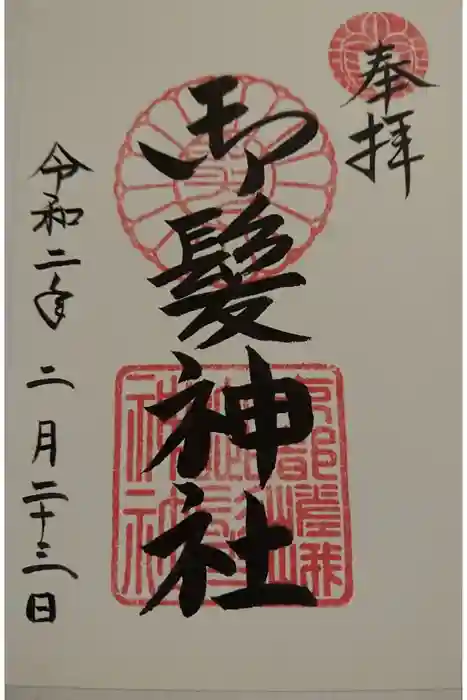 奉拝
御髪神社
京都嵯峨
御髪
神社
令和二年 二月二十三日